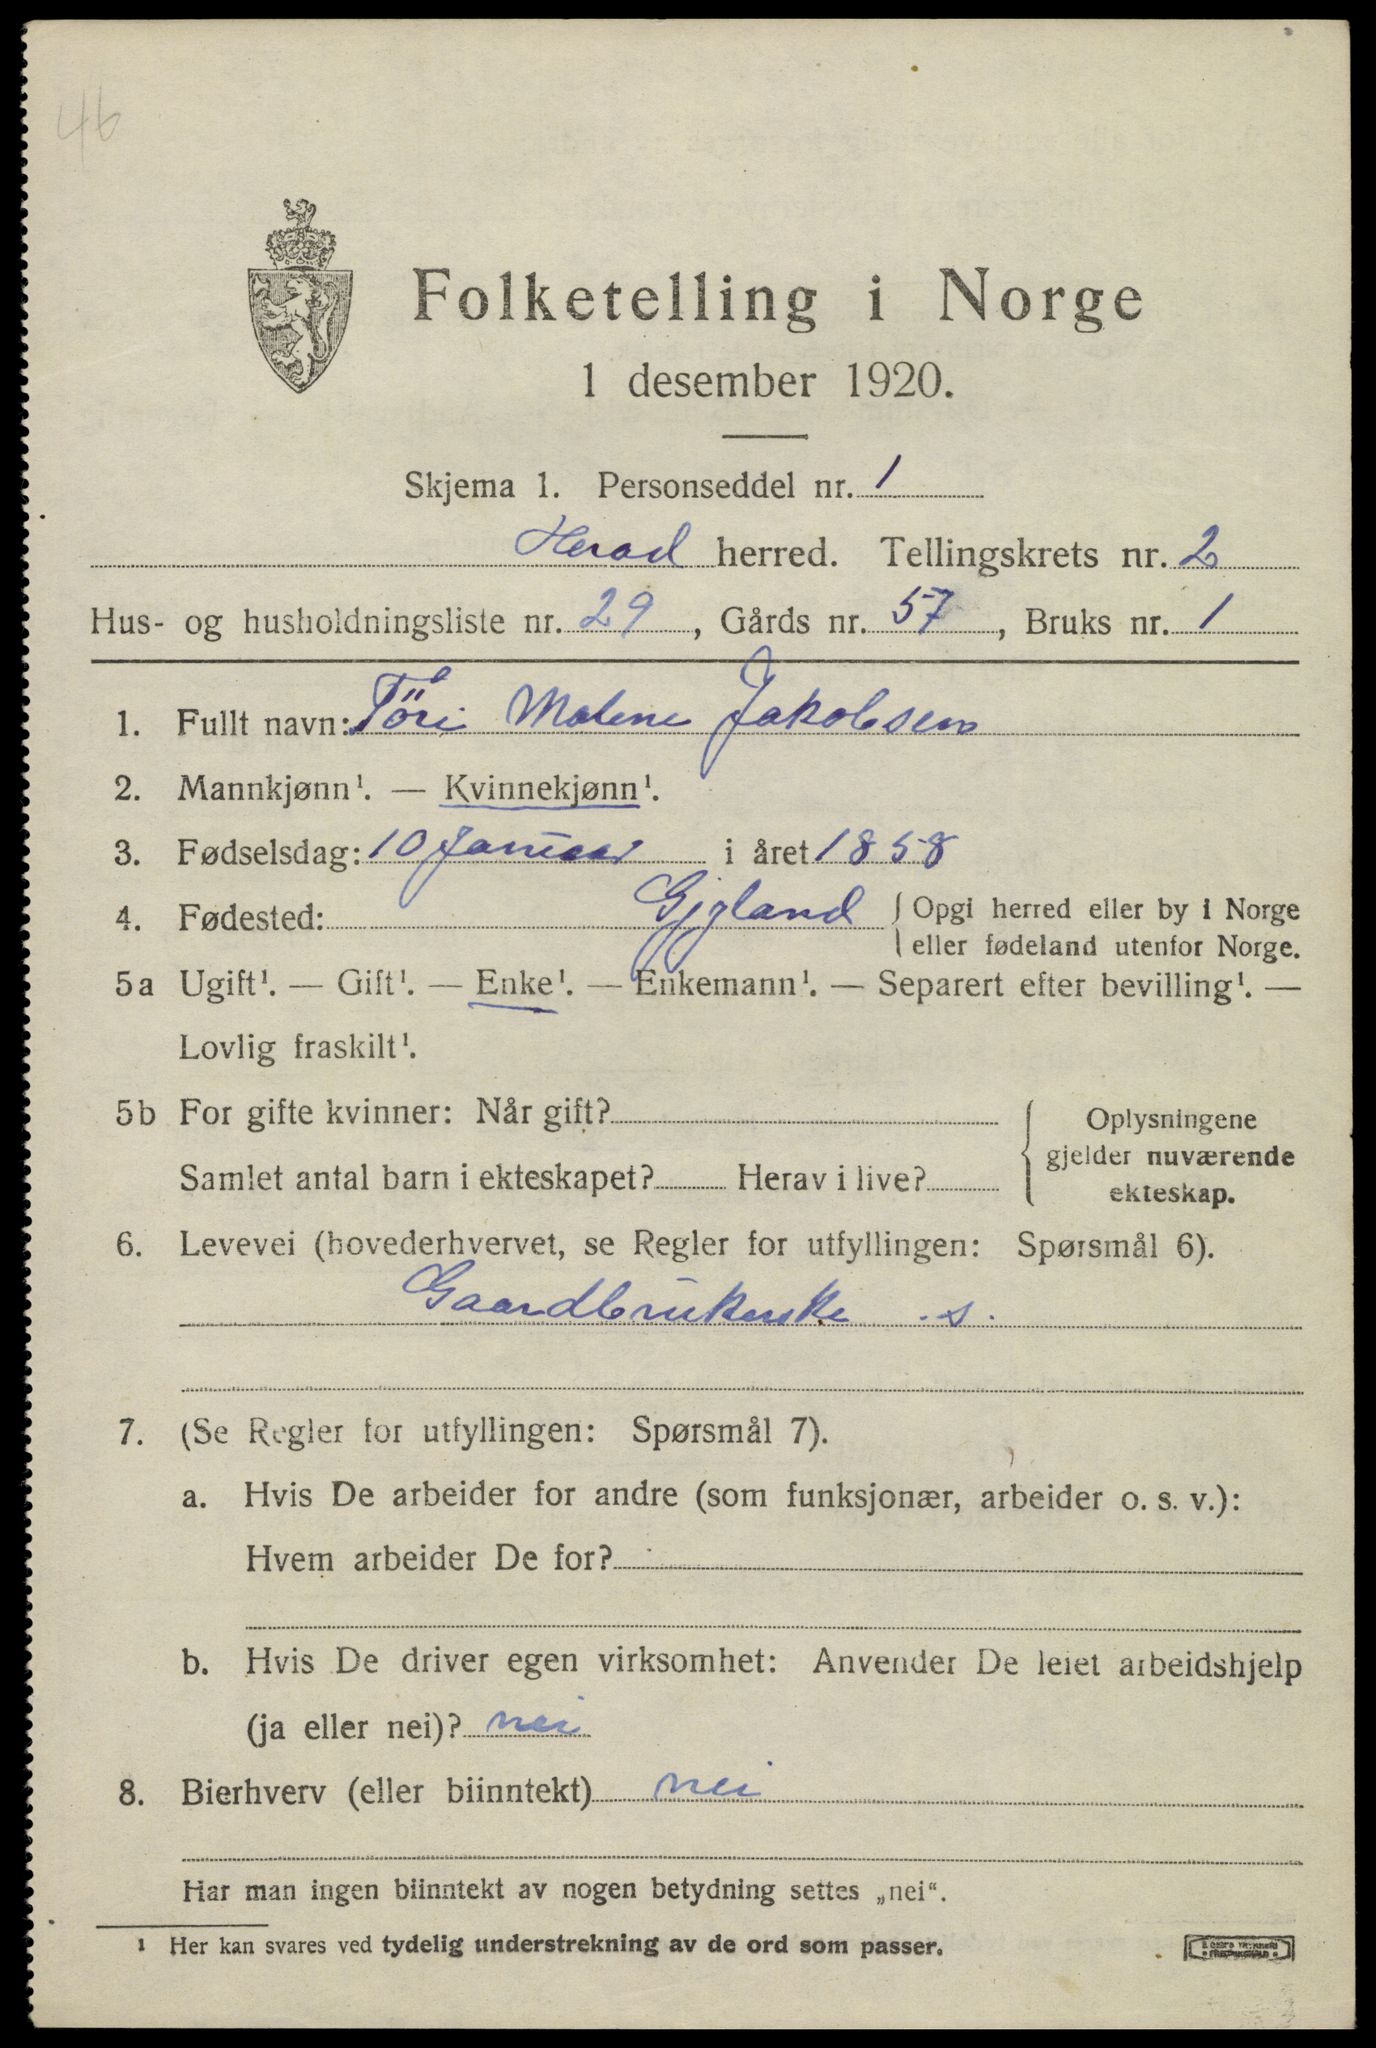 46
Folketelling i Norge
1 desember 1920.
Skjema 1. Personseddel nr. 1
Herad herred. Tellingskrets nr. 2
Hus- og husholdningsliste nr. 29, Gårds nr. 57, Bruks nr. 1
1. Fullt navn: Töri Malene Jakobsen
2. Mannkjønn¹. — Kvinnekjønn¹.
3. Fødselsdag: 10 Januar i året 1858
4. Fødested: Gyland { Opgi herred eller by i Norge
eller fødeland utenfor Norge.
5a Ugift¹. — Gift¹. — Enke¹. — Enkemann¹. — Separert efter bevilling¹. —
Lovlig fraskilt¹.
5b For gifte kvinner: Når gift? { Oplysningene
gjelder nuværende
Samlet antal barn i ekteskapet? Herav i live?
ekteskap.
6. Levevei (hovederhvervet, se Regler for utfyllingen: Spørsmål 6).
Gaardbrukerske .s.
7. (Se Regler for utfyllingen: Spørsmål 7).
a. Hvis De arbeider for andre (som funksjonær, arbeider o. s. v.):
Hvem arbeider De for?
b. Hvis De driver egen virksomhet: Anvender De leiet arbeidshjelp
(ja eller nei)? nei
8. Bierhverv (eller biinntekt) nei
Har man ingen biinntekt av nogen betydning settes „nei“.
¹ Her kan svares ved tydelig understrekning av de ord som passer.